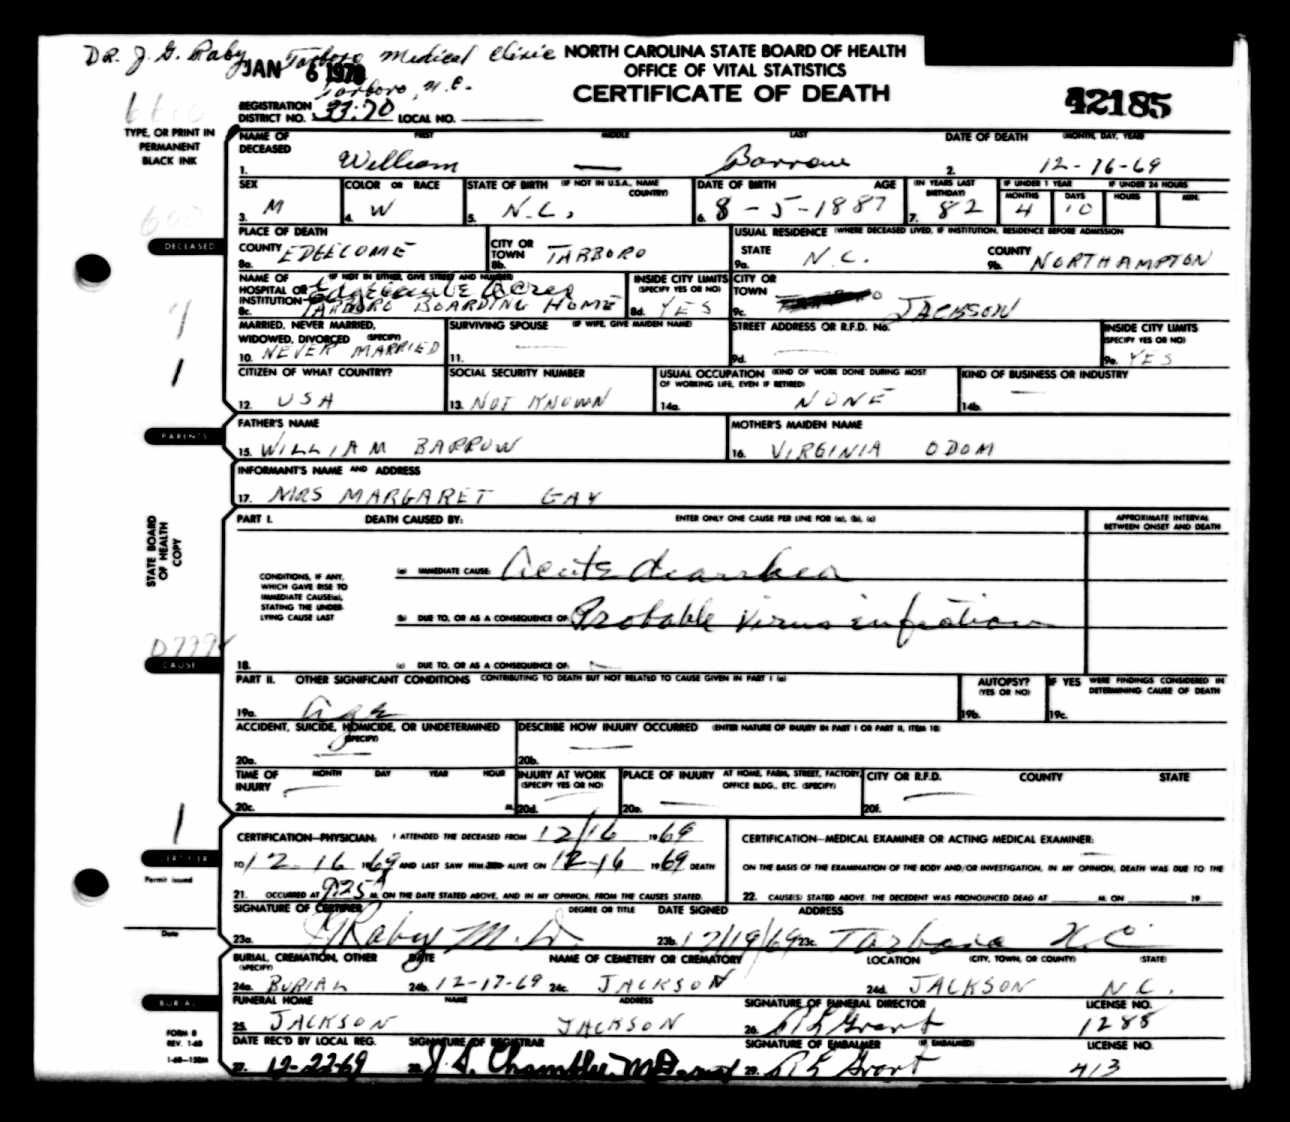 DR. J. G. Raby Tarboro Medical Clinic
JAN 6 1970
Tarboro, N.C.
NORTH CAROLINA STATE BOARD OF HEALTH
OFFICE OF VITAL STATISTICS
CERTIFICATE OF DEATH
42185
REGISTRATION DISTRICT NO. 33-70 LOCAL NO.
TYPE, OR PRINT IN PERMANENT BLACK INK
NAME OF DECEASED FIRST MIDDLE LAST DATE OF DEATH (MONTH, DAY, YEAR)
1. William — Barrow 2. 12-16-69
SEX COLOR OR RACE STATE OF BIRTH (IF NOT IN U.S.A., NAME COUNTRY) DATE OF BIRTH AGE (IN YEARS LAST BIRTHDAY) IF UNDER 1 YEAR IF UNDER 24 HOURS
MONTHS DAYS HOURS MIN.
3. M 4. W 5. N.C. 6. 8-5-1887 7. 82 4 10
DECEASED
PLACE OF DEATH USUAL RESIDENCE (WHERE DECEASED LIVED, IF INSTITUTION, RESIDENCE BEFORE ADMISSION
COUNTY 8a. EDGECOME CITY OR TOWN 8b. TARBORO STATE 9a. N.C. COUNTY 9b. NORTHAMPTON
NAME OF HOSPITAL OR INSTITUTION (IF NOT IN EITHER, GIVE STREET AND NUMBER) INSIDE CITY LIMITS (SPECIFY YES OR NO) CITY OR TOWN
8c. Edgecombe Acres TARBORO BOARDING HOME 8d. YES 9c. JACKSON
MARRIED, NEVER MARRIED, WIDOWED, DIVORCED (SPECIFY) SURVIVING SPOUSE (IF WIFE, GIVE MAIDEN NAME) STREET ADDRESS OR R.F.D. No. INSIDE CITY LIMITS (SPECIFY YES OR NO)
10. NEVER MARRIED 11. — 9d. — 9e. YES
CITIZEN OF WHAT COUNTRY? SOCIAL SECURITY NUMBER USUAL OCCUPATION (KIND OF WORK DONE DURING MOST OF WORKING LIFE, EVEN IF RETIRED) KIND OF BUSINESS OR INDUSTRY
12. USA 13. NOT KNOWN 14a. NONE 14b. —
PARENTS
FATHER'S NAME MOTHER'S MAIDEN NAME
15. WILLIAM BARROW 16. VIRGINIA ODOM
INFORMANT'S NAME AND ADDRESS
17. MRS MARGARET GAY
STATE BOARD OF HEALTH COPY
PART I. DEATH CAUSED BY: ENTER ONLY ONE CAUSE PER LINE FOR (a), (b), (c) APPROXIMATE INTERVAL BETWEEN ONSET AND DEATH
CONDITIONS, IF ANY, WHICH GAVE RISE TO IMMEDIATE CAUSE(a), STATING THE UNDERLYING CAUSE LAST
(a) IMMEDIATE CAUSE: Acute diarrhea
(b) DUE TO, OR AS A CONSEQUENCE OF: Probable virus infection
CAUSE
18. (c) DUE TO, OR AS A CONSEQUENCE OF:
PART II. OTHER SIGNIFICANT CONDITIONS CONTRIBUTING TO DEATH BUT NOT RELATED TO CAUSE GIVEN IN PART I (a) AUTOPSY? (YES OR NO) IF YES WERE FINDINGS CONSIDERED IN DETERMINING CAUSE OF DEATH
19a. Age 19b. 19c.
ACCIDENT, SUICIDE, HOMICIDE, OR UNDETERMINED (SPECIFY) DESCRIBE HOW INJURY OCCURRED (ENTER NATURE OF INJURY IN PART I OR PART II, ITEM 18)
20a. — 20b. —
TIME OF INJURY MONTH DAY YEAR HOUR INJURY AT WORK (SPECIFY YES OR NO) PLACE OF INJURY AT HOME, FARM, STREET, FACTORY, OFFICE BLDG., ETC. (SPECIFY) CITY OR R.F.D. COUNTY STATE
20c. — M. 20d. — 20e. — 20f. —
CERTIFICATION—PHYSICIAN: I ATTENDED THE DECEASED FROM 12/16 1969 CERTIFICATION—MEDICAL EXAMINER OR ACTING MEDICAL EXAMINER:
CERTIFIER
TO 12-16 1969 AND LAST SAW HIM ALIVE ON 12-16 1969 DEATH ON THE BASIS OF THE EXAMINATION OF THE BODY AND/OR INVESTIGATION, IN MY OPINION, DEATH WAS DUE TO THE
Permit issued
21. OCCURRED AT 9:25 M. ON THE DATE STATED ABOVE, AND IN MY OPINION, FROM THE CAUSES STATED. 22. CAUSE(S) STATED ABOVE. THE DECEDENT WAS PRONOUNCED DEAD AT M. ON 19
SIGNATURE OF CERTIFIER DEGREE OR TITLE DATE SIGNED ADDRESS
Date
23a. JG Raby M.D. 23b. 12/19/69 23c. Tarboro N.C.
BURIAL, CREMATION, OTHER (SPECIFY) DATE NAME OF CEMETERY OR CREMATORY LOCATION (CITY, TOWN, OR COUNTY) (STATE)
24a. BURIAL 24b. 12-17-69 24c. JACKSON 24d. JACKSON N.C.
BURIAL
FUNERAL HOME NAME ADDRESS SIGNATURE OF FUNERAL DIRECTOR LICENSE NO.
25. JACKSON JACKSON 26. Grant 1288
FORM 8
REV. 1-68
1-68—150M
DATE REC'D BY LOCAL REG. SIGNATURE OF REGISTRAR SIGNATURE OF EMBALMER (IF EMBALMED) LICENSE NO.
27. 12-22-69 28. J. S. Chamblee 29. Grant 413